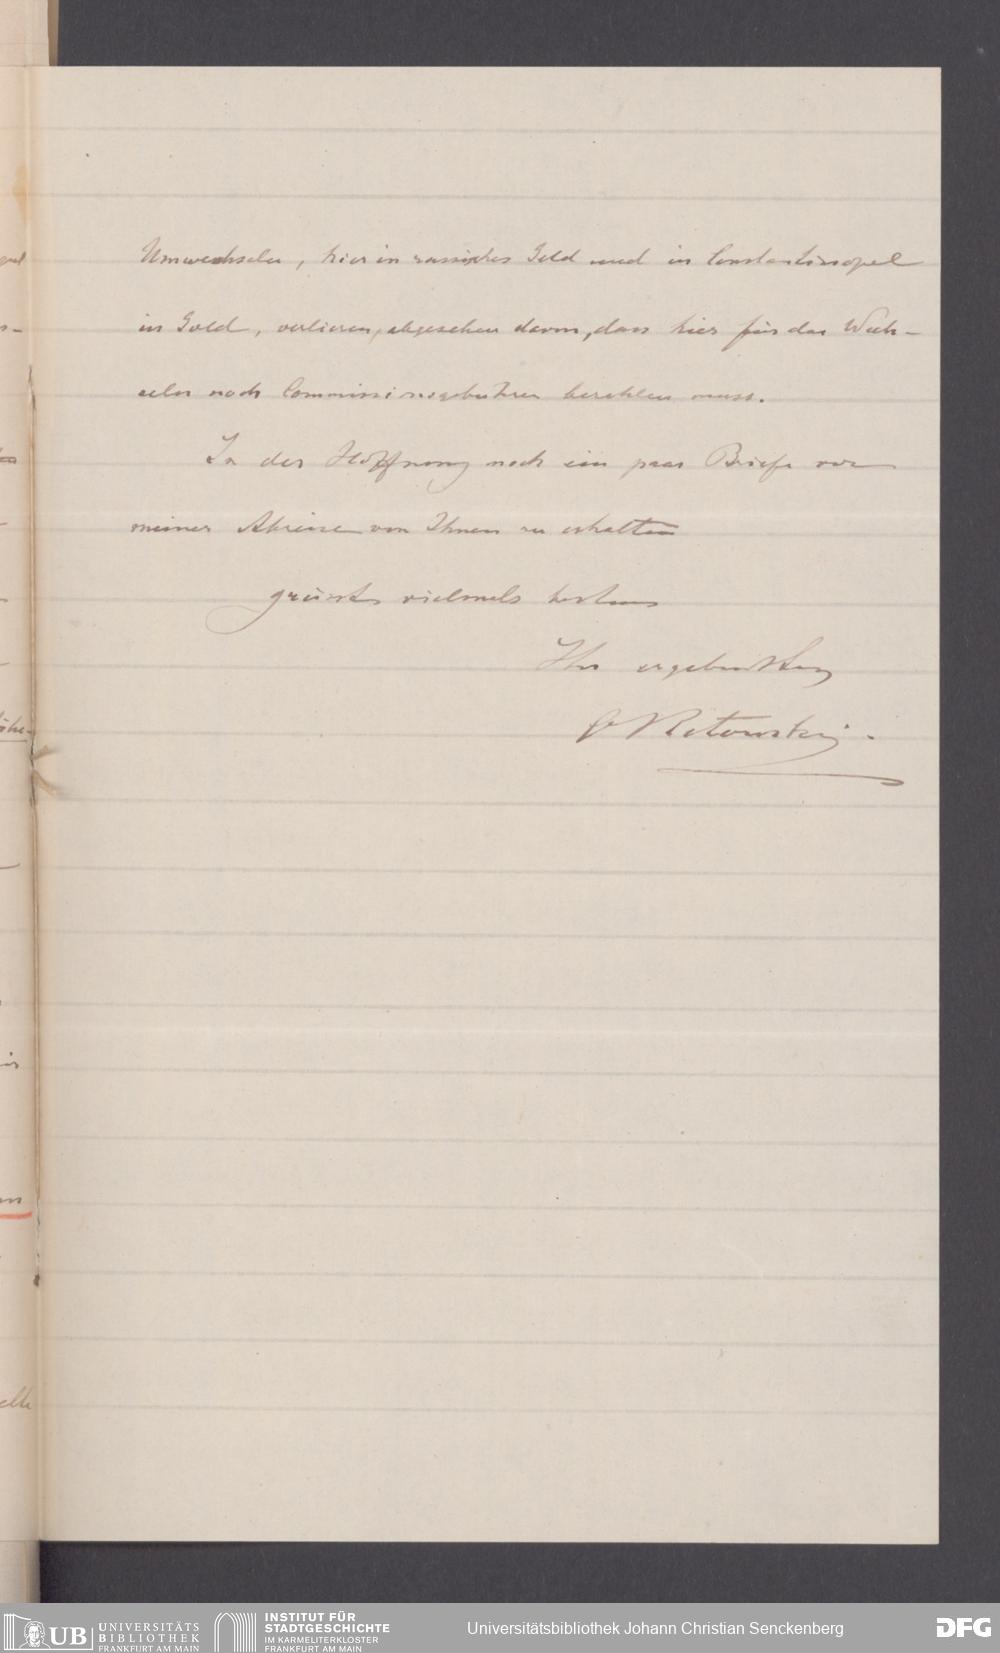 Umwechseln, hier in russisches Geld und in Constantinopel
in Gold, verlieren, abgesehen davon, dass hier für das Wech-
seln noch Commissionsgebühren bezahlen muss.
In der Hoffnung noch ein paar Briefe vor
meiner Abreise von Ihnen zu erhalten
grüsst vielmals bestens
Ihr ergebenster
O Retowski.
UB UNIVERSITÄTS
BIBLIOTHEK
FRANKFURT AM MAIN
INSTITUT FÜR
STADTGESCHICHTE
IM KARMELITERKLOSTER
FRANKFURT AM MAIN
Universitätsbibliothek Johann Christian Senckenberg
DFG